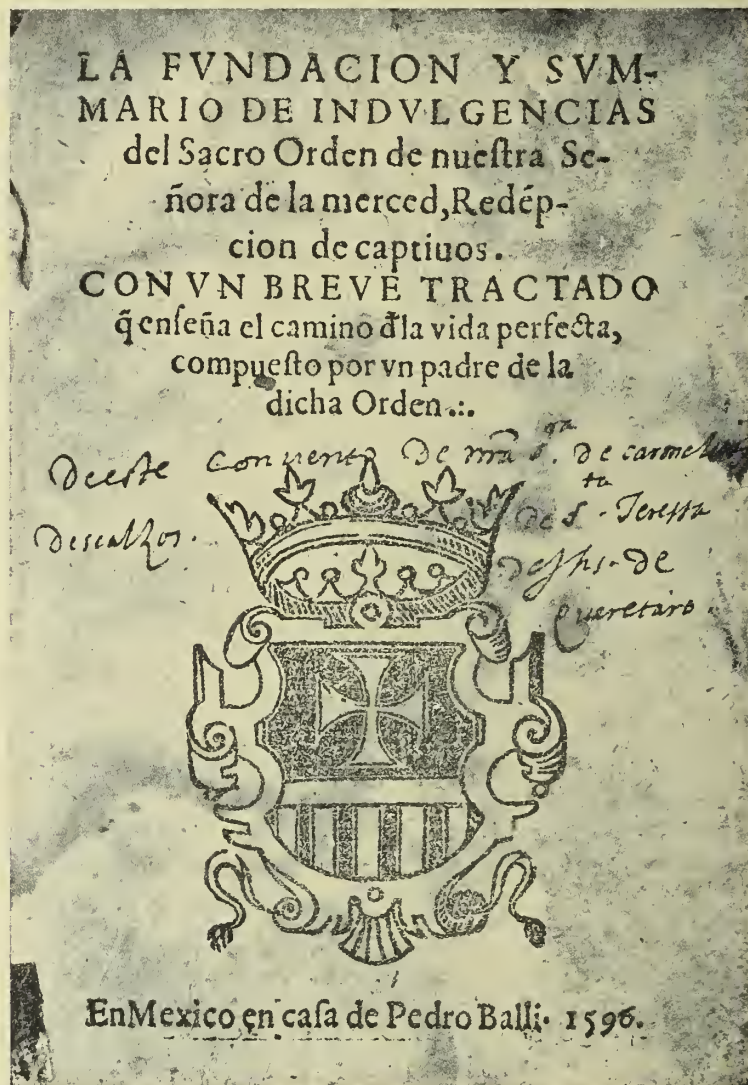 LA FVNDACION Y SVM-
MARIO DE INDVLGENCIAS
del Sacro Orden de nueſtra Se-
ñora de la merced, Redẽp-
cion de captiuos.
CON VN BREVE TRACTADO
q̃ enſeña el camino d̃la vida perfecta,
compueſto por vn padre de la
dicha Orden .:.
Deeste Convento De nrã Sra. De carmelitas
Descalzos. De Sta. Teressa
De Jhs. De
Queretaro.
En Mexico en caſa de Pedro Balli. 1596.